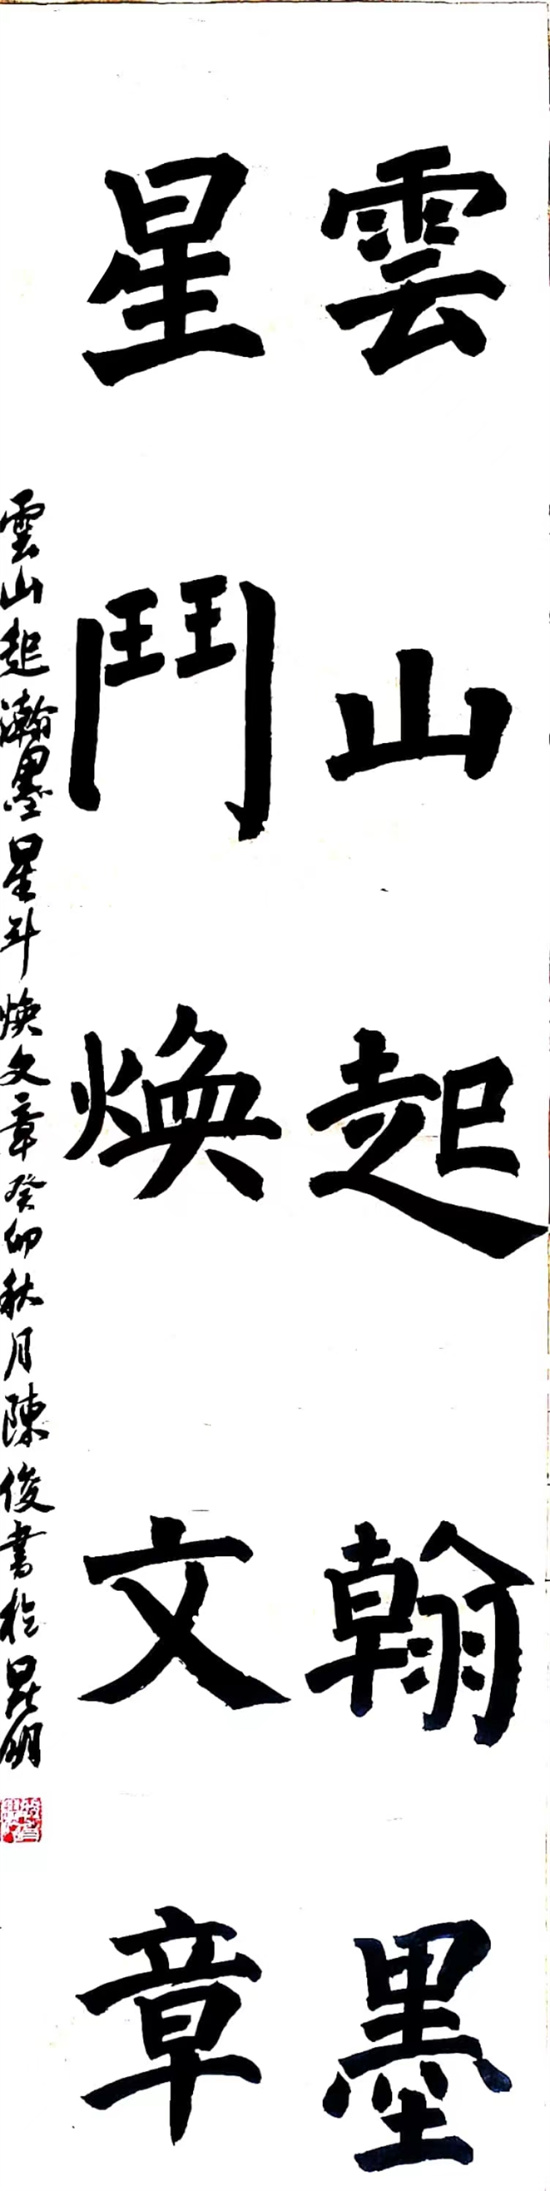 雲山起翰墨
星鬥煥文章
雲山起瀚墨星斗焕文章癸卯秋月陳俊書於昆明